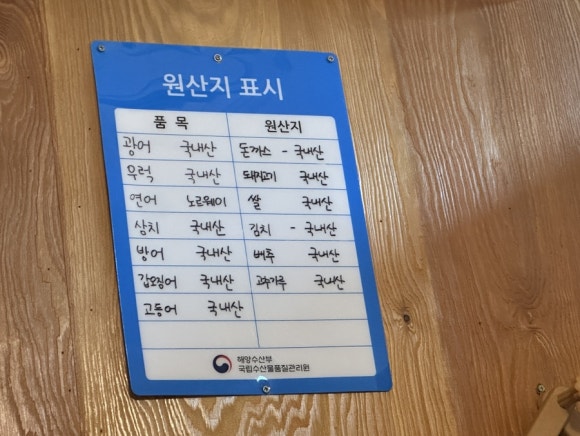 원산지 표시
품 목 원산지
광어 국내산 돈까스 - 국내산
우럭 국내산 돼지고기 국내산
연어 노르웨이 쌀 국내산
삼치 국내산 김치 - 국내산
방어 국내산 배추 국내산
갑오징어 국내산 고추가루 국내산
고등어 국내산
해양수산부
국립수산물품질관리원